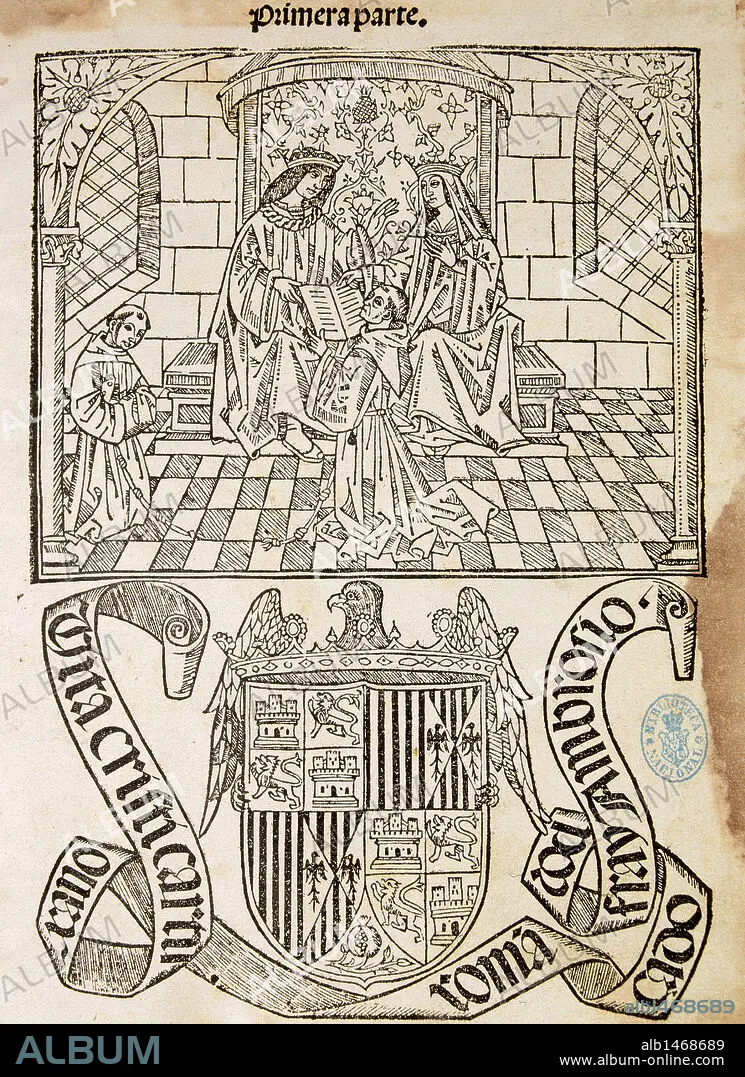 Primera parte.
Vita cristi cartu
xano
romã
çado
por
fray Ambrosio.
BIBLIOTECA NACIONAL
alb1468689
ALBUM
alb1468689
www.album-online.com